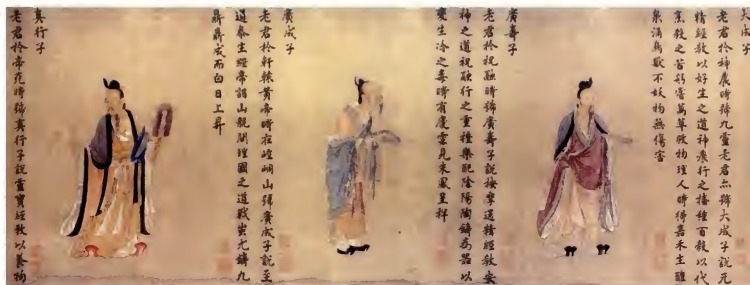 成子
老君於神農時號九靈老君亦號大成子說元
精經教以好生之道神農行之播種百穀以代
烹殺之苦躬嘗萬草教物理人時得嘉禾生醴
泉涌鳥獸不妖物無傷害
廣壽子
老君於祝融時號廣壽子說按摩通精經教安
神之道祝融行之重禮樂配陰陽陶鑄為器以
變生冷之毒時有慶雲見來鳳呈祥
廣成子
老君於軒轅黃帝時在崆峒山號廣成子說至
道泰生經帝詣山親問理國之道戰蚩尤鑄九
鼎鼎成而白日上昇
真行子
老君於帝時號真行子說靈寶經教以養物